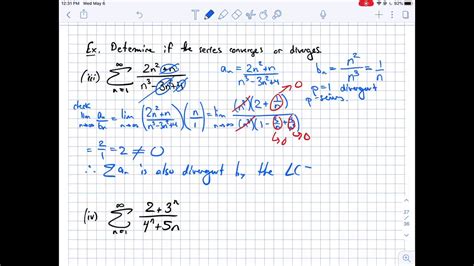 12:31 PM Wed May 6
52%
Ex. Determine if the series converges or diverges.
(iii) ∞ Σ n=1 2n²+n / n³-3n²+4 a_n = 2n²+n / n³-3n²+4 b_n = n²/n³ = 1/n
p=1 divergent
p-series.
check
lim n→∞ a_n/b_n = lim n→∞ (2n²+n / n³-3n²+4)(n/1) = lim n→∞ (n³)(2+1/n) / (n³)(1-3/n+4/n³) →0 →0 →0
= 2/1 = 2 ≠ 0
∴ Σ a_n is also divergent by the LC
(iv) ∞ Σ n=1 2+3ⁿ / 4ⁿ+5n